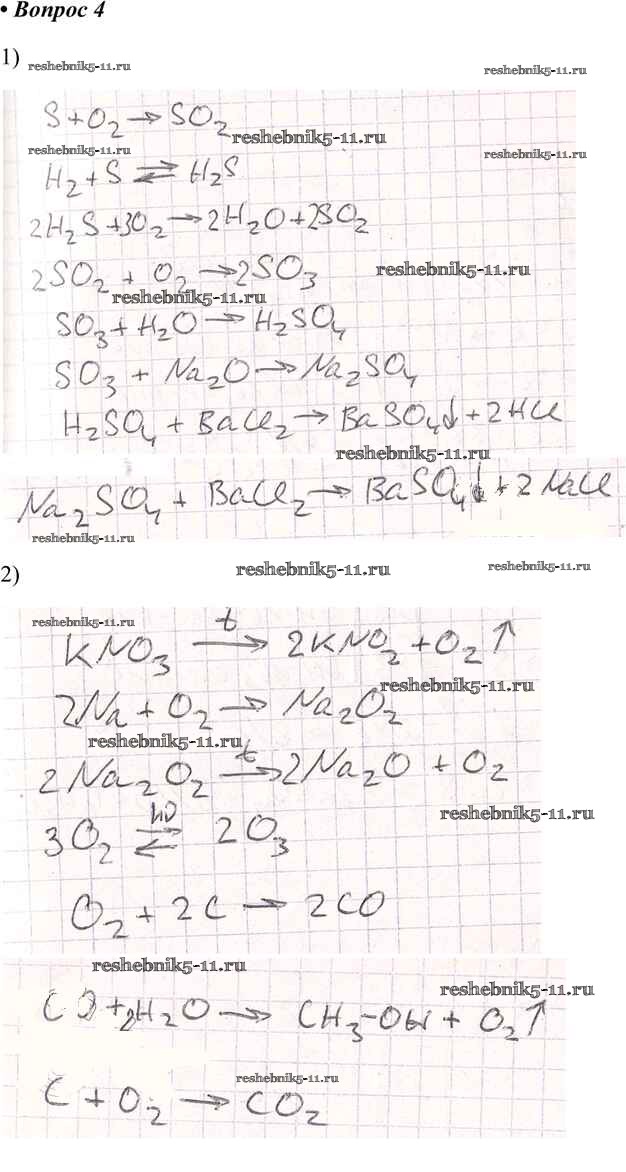 • Вопрос 4
1)
reshebnik5-11.ru
reshebnik5-11.ru
S + O₂ → SO₂
reshebnik5-11.ru
reshebnik5-11.ru
reshebnik5-11.ru
H₂ + S ⇄ H₂S
2H₂S + 3O₂ → 2H₂O + 2SO₂
2SO₂ + O₂ → 2SO₃
reshebnik5-11.ru
reshebnik5-11.ru
SO₃ + H₂O → H₂SO₄
SO₃ + Na₂O → Na₂SO₄
H₂SO₄ + BaCl₂ → BaSO₄↓ + 2HCl
reshebnik5-11.ru
Na₂SO₄ + BaCl₂ → BaSO₄↓ + 2NaCl
reshebnik5-11.ru
reshebnik5-11.ru
reshebnik5-11.ru
2)
reshebnik5-11.ru
KNO₃ →t 2KNO₂ + O₂↑
reshebnik5-11.ru
2Na + O₂ → Na₂O₂
reshebnik5-11.ru
2Na₂O₂ →t 2Na₂O + O₂
reshebnik5-11.ru
3O₂ ⇄hν 2O₃
O₂ + 2C → 2CO
reshebnik5-11.ru
reshebnik5-11.ru
CO + 2H₂O → CH₃-OH + O₂↑
reshebnik5-11.ru
C + O₂ → CO₂